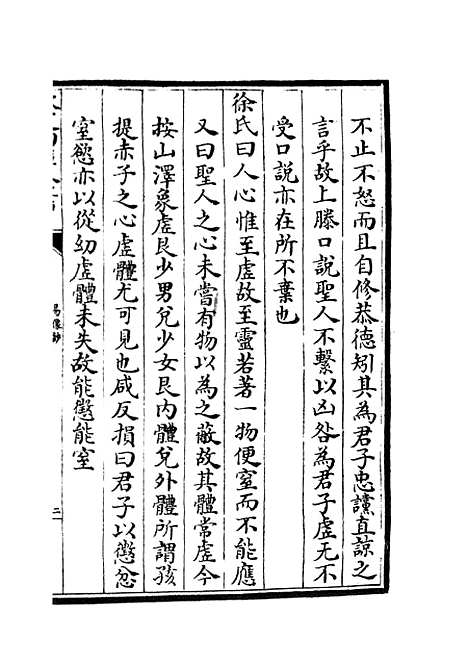 不止不怒而且自修恭德矧其為君子忠讜直諒之
言乎故上滕口說聖人不繫以凶咎為君子虛无不
受口說亦在所不棄也
徐氏曰人心惟至虛故至靈若著一物便窒而不能應
又曰聖人之心未嘗有物以為之蔽故其體常虛今
按山澤象虛艮少男兌少女艮內體兌外體所謂孩
提赤子之心虛體尤可見也咸反損曰君子以懲忿
窒慾亦以從幼虛體未失故能懲能窒
易像鈔
二